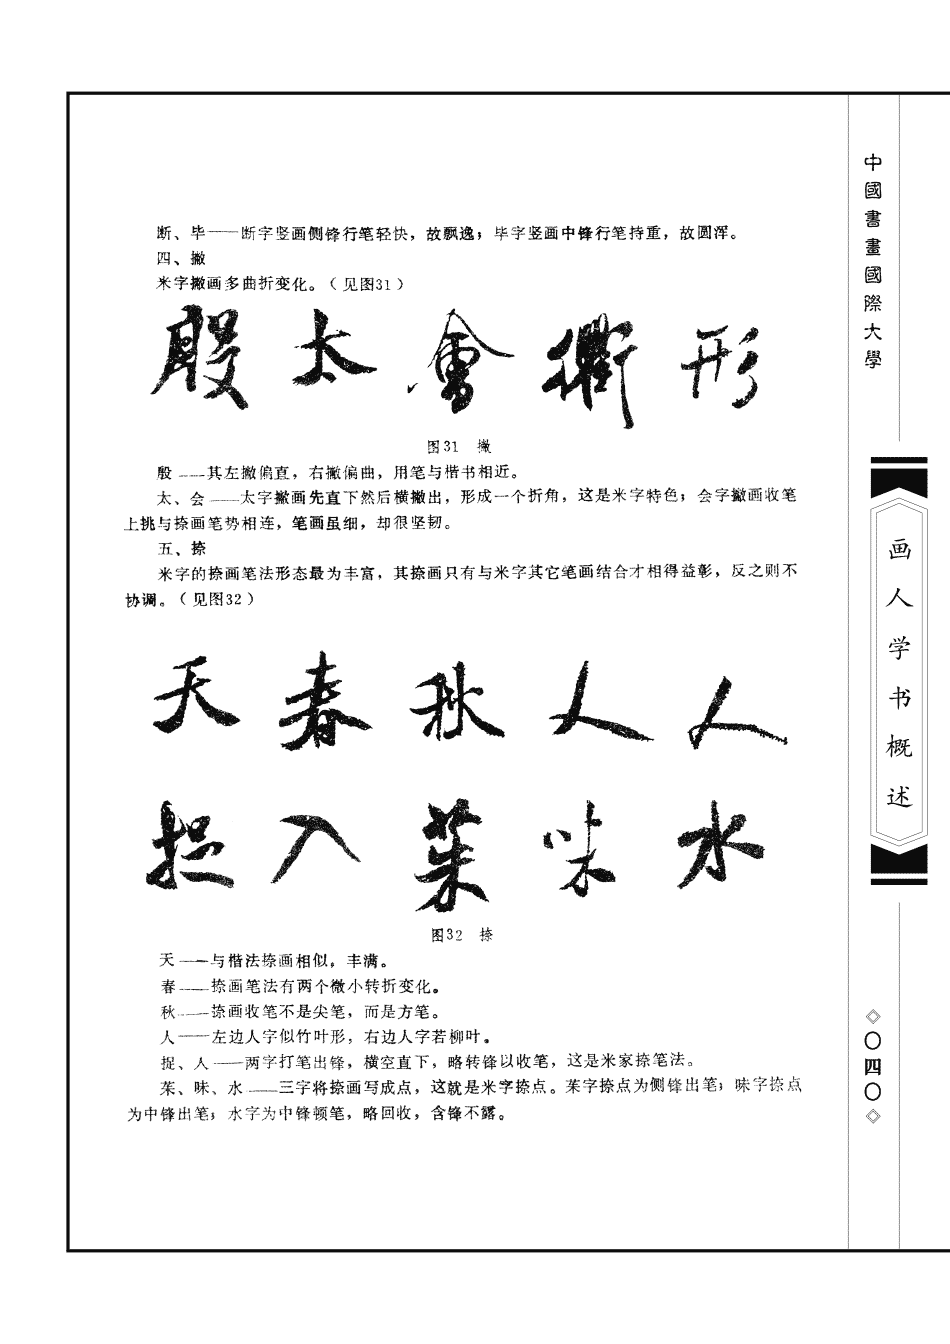 断、毕——断字竖画侧锋行笔轻快，故飘逸；毕字竖画中锋行笔持重，故圆浑。
四、撇
米字撇画多曲折变化。（见图31）
殷 太 會 衢 形
图31 撇
殷——其左撇偏直，右撇偏曲，用笔与楷书相近。
太、会——太字撇画先直下然后横撇出，形成一个折角，这是米字特色；会字撇画收笔
上挑与捺画笔势相连，笔画虽细，却很坚韧。
五、捺
米字的捺画笔法形态最为丰富，其捺画只有与米字其它笔画结合才相得益彰，反之则不
协调。（见图32）
天 春 秋 人 人
捉 入 茱 味 水
图32 捺
天——与楷法捺画相似，丰满。
春——捺画笔法有两个微小转折变化。
秋——捺画收笔不是尖笔，而是方笔。
人——左边人字似竹叶形，右边人字若柳叶。
捉、人——两字打笔出锋，横空直下，略转锋以收笔，这是米家捺笔法。
茱、味、水——三字将捺画写成点，这就是米字捺点。茱字捺点为侧锋出笔；味字捺点
为中锋出笔；水字为中锋顿笔，略回收，含锋不露。
中國書畫國際大學
画人学书概述
◇〇四〇◇